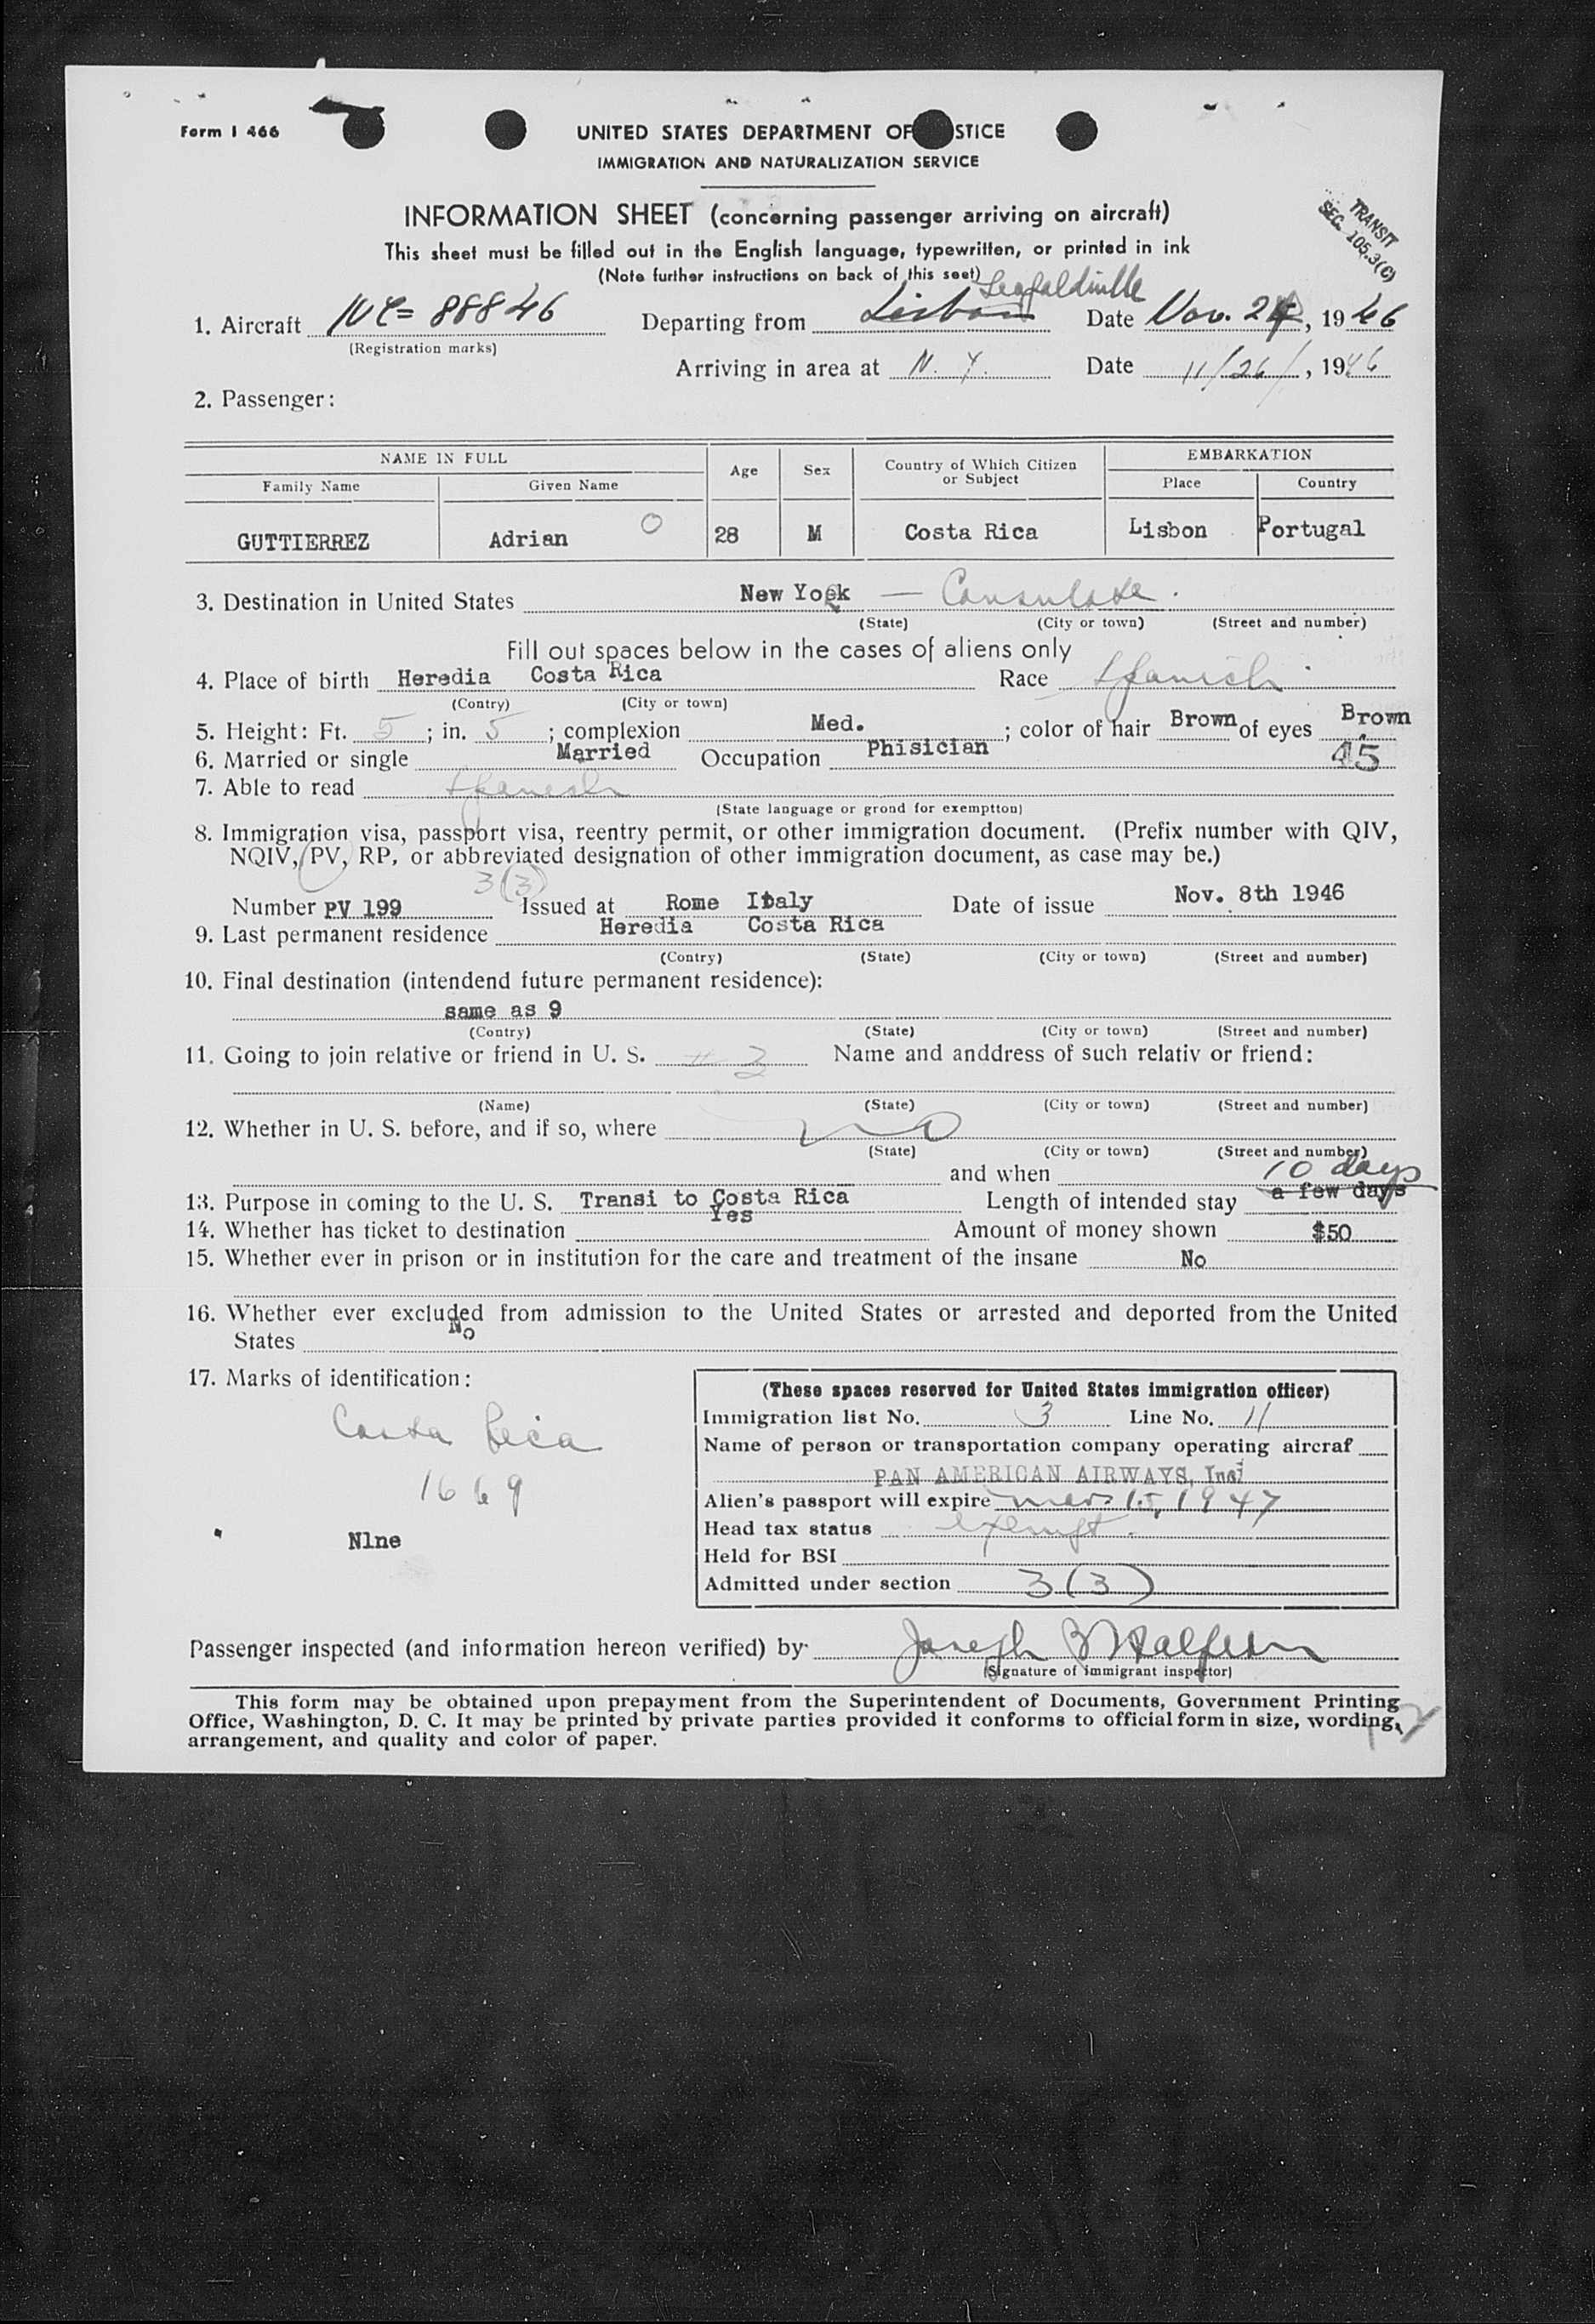 Form I 466
UNITED STATES DEPARTMENT OF STICE
IMMIGRATION AND NATURALIZATION SERVICE
INFORMATION SHEET (concerning passenger arriving on aircraft)
TRANSIT
SEC. 105.3(C)
This sheet must be filled out in the English language, typewritten, or printed in ink
(Note further instructions on back of this seet)
Leopoldville
1. Aircraft NC= 88846 Departing from Lisbon Date Nov. 24, 1946
(Registration marks)
Arriving in area at N. Y. Date 11/26/, 1946
2. Passenger:
NAME IN FULL Age Sex Country of Which Citizen or Subject EMBARKATION
Family Name Given Name Place Country
GUTTIERREZ Adrian O 28 M Costa Rica Lisbon Portugal
3. Destination in United States New York — Consulate.
(State) (City or town) (Street and number)
Fill out spaces below in the cases of aliens only
4. Place of birth Heredia Costa Rica Race Spanish
(Contry) (City or town)
5. Height: Ft. 5; in. 5; complexion Med.; color of hair Brown of eyes Brown
6. Married or single Married Occupation Phisician 45
7. Able to read Spanish
(State language or grond for exemptton)
8. Immigration visa, passport visa, reentry permit, or other immigration document. (Prefix number with QIV,
NQIV, PV, RP, or abbreviated designation of other immigration document, as case may be.)
3(3)
Number PV 199 Issued at Rome Italy Date of issue Nov. 8th 1946
9. Last permanent residence Heredia Costa Rica
(Contry) (State) (City or town) (Street and number)
10. Final destination (intendend future permanent residence):
same as 9
(Contry) (State) (City or town) (Street and number)
11. Going to join relative or friend in U. S. # 3 Name and anddress of such relativ or friend:
(Name) (State) (City or town) (Street and number)
12. Whether in U. S. before, and if so, where no
(State) (City or town) (Street and number)
and when 10 days
13. Purpose in coming to the U. S. Transi to Costa Rica Length of intended stay a few days
14. Whether has ticket to destination Yes Amount of money shown $50
15. Whether ever in prison or in institution for the care and treatment of the insane No
16. Whether ever excluded from admission to the United States or arrested and deported from the United
States No
17. Marks of identification:
Costa Rica
1669
Nlne
(These spaces reserved for United States immigration officer)
Immigration list No. 3 Line No. 11
Name of person or transportation company operating aircraf
PAN AMERICAN AIRWAYS, Inc
Alien's passport will expire Mar 15, 1947
Head tax status exempt.
Held for BSI
Admitted under section 3(3)
Passenger inspected (and information hereon verified) by Joseph B Halpern
(Signature of immigrant inspector)
This form may be obtained upon prepayment from the Superintendent of Documents, Government Printing
Office, Washington, D. C. It may be printed by private parties provided it conforms to official form in size, wording,
arrangement, and quality and color of paper.